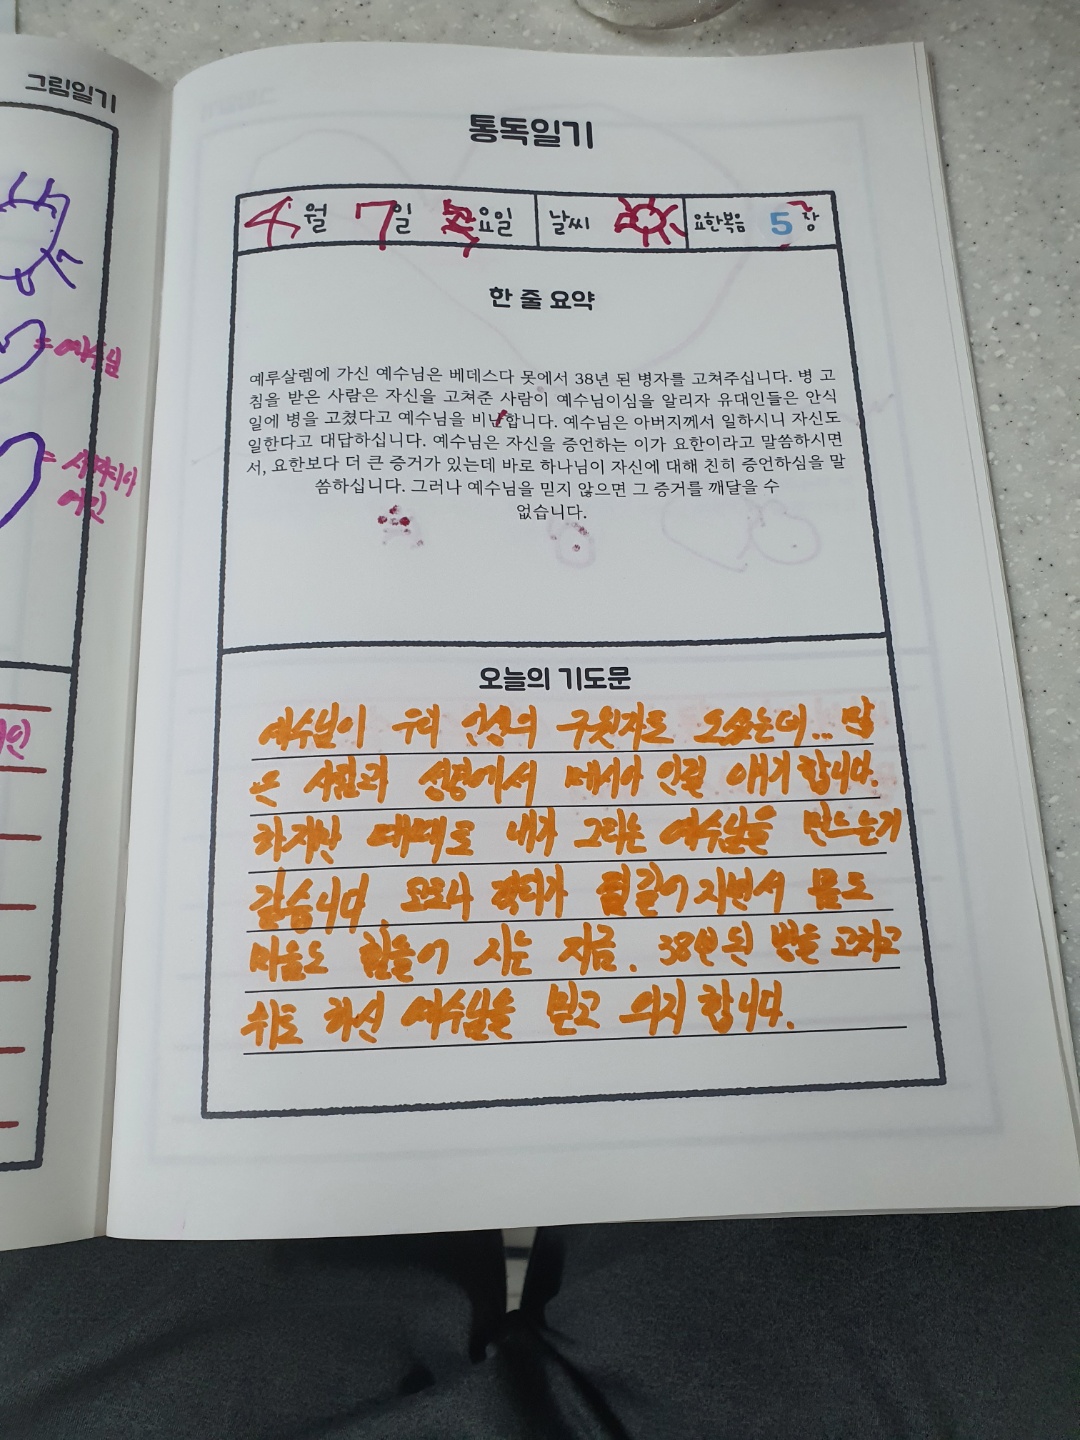 그림일기
= 예수님
통독일기
4월 7일 목요일 날씨 요한복음 5장
한 줄 요약
예루살렘에 가신 예수님은 베데스다 못에서 38년 된 병자를 고쳐주십니다. 병 고
침을 받은 사람은 자신을 고쳐준 사람이 예수님이심을 알리자 유대인들은 안식
일에 병을 고쳤다고 예수님을 비난합니다. 예수님은 아버지께서 일하시니 자신도
일한다고 대답하십니다. 예수님은 자신을 증언하는 이가 요한이라고 말씀하시면
서, 요한보다 더 큰 증거가 있는데 바로 하나님이 자신에 대해 친히 증언하심을 말
씀하십니다. 그러나 예수님을 믿지 않으면 그 증거를 깨달을 수
없습니다.
오늘의 기도문
예수님이 우리 인생의 구원자로 오셨는데... 많
은 사람과 성경에서 메시아 인걸 얘기합니다.
하지만 때때로 내가 그리는 예수님을 만드는거
같습니다. 코로나 확진가 길어지면서 몸도
마음도 힘들어 지는 지금. 38년된 병을 고치고
쉬도 하신 예수님을 믿고 의지합니다.